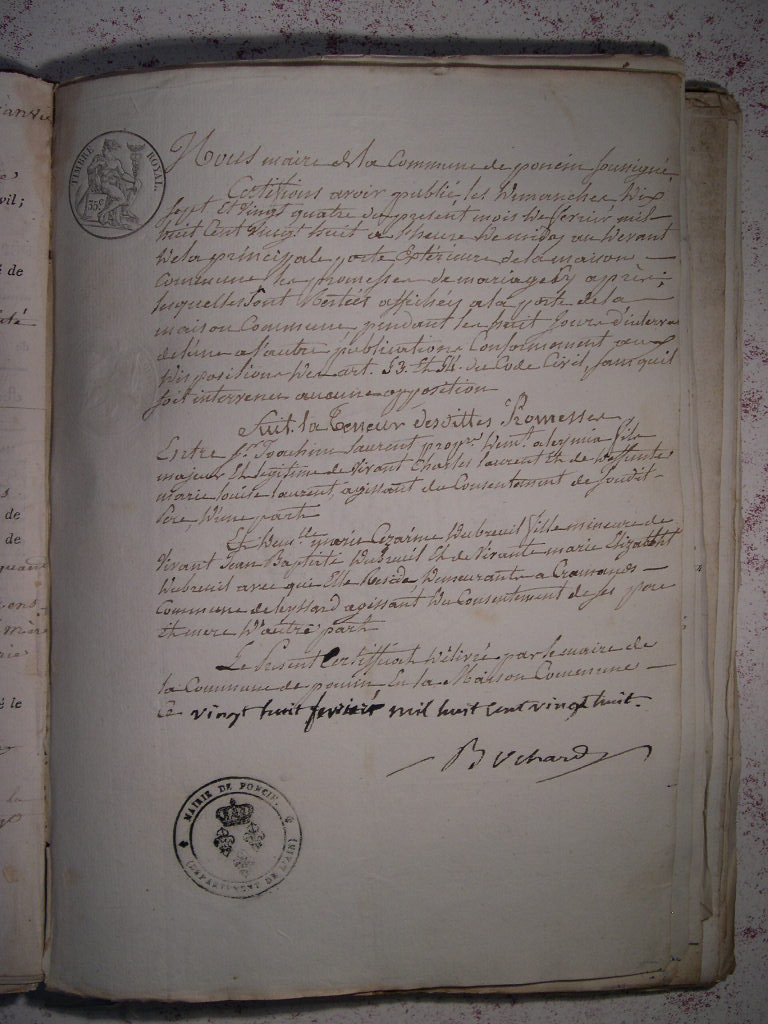 TIMBRE ROYAL
35c
Nous maire de la Commune de poncin soussigné,
Certiffions avoir publié, les Demanches, Dix
sept Et vingt quatre du present mois De fevrier mil
huit Cent vingt huit a l'heure De midy au Devant
De la principale porte Extérieure de la maison —
Commune les promesses de mariage Cy après;
lesquelles sont Restées affichés a la porte de la
maison Commune pendant les huit Jours d'interva
de l'une a l'autre publication Conformement aux
Dispositions Des art. 63. Et 64. du Code Civil, sans quil
soit intervenu aucune opposition
Suit la Teneur Desdittes Promesses,
Entre sr. Joachim Laurent propre. Demt. a leymia fils
majeur Et legitime de vivant Charles Laurent Et de Deffunte
marie Louise Laurent, agissant du Consentement de Soudit
Pere, D'une part
Et Demlle marie Cezarine Dubreuil fille mineure de
vivant Jean Baptiste Dubreuil Et de vivante marie Elizabeth
Dubreuil avec qui Elle Reside Demeurante a Cramans —
Commune de hyssard agissant Du Consentement de ses pere
Et mere D'autre part
Le Present Certifficat Délivré par le maire de
la Commune de poncin En la Maison Commune —
Ce vingt huit fevrier mil huit Cent vingt huit.
Bochard
MAIRIE DE PONCIN
(DEPARTEMENT DE L'AIN)
vil;
de
de
de
le